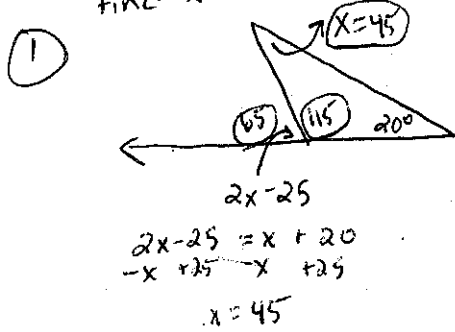 1
x = 45
65 115 20°
2x-25
2x-25 = x + 20
-x +25 -x +25
x = 45